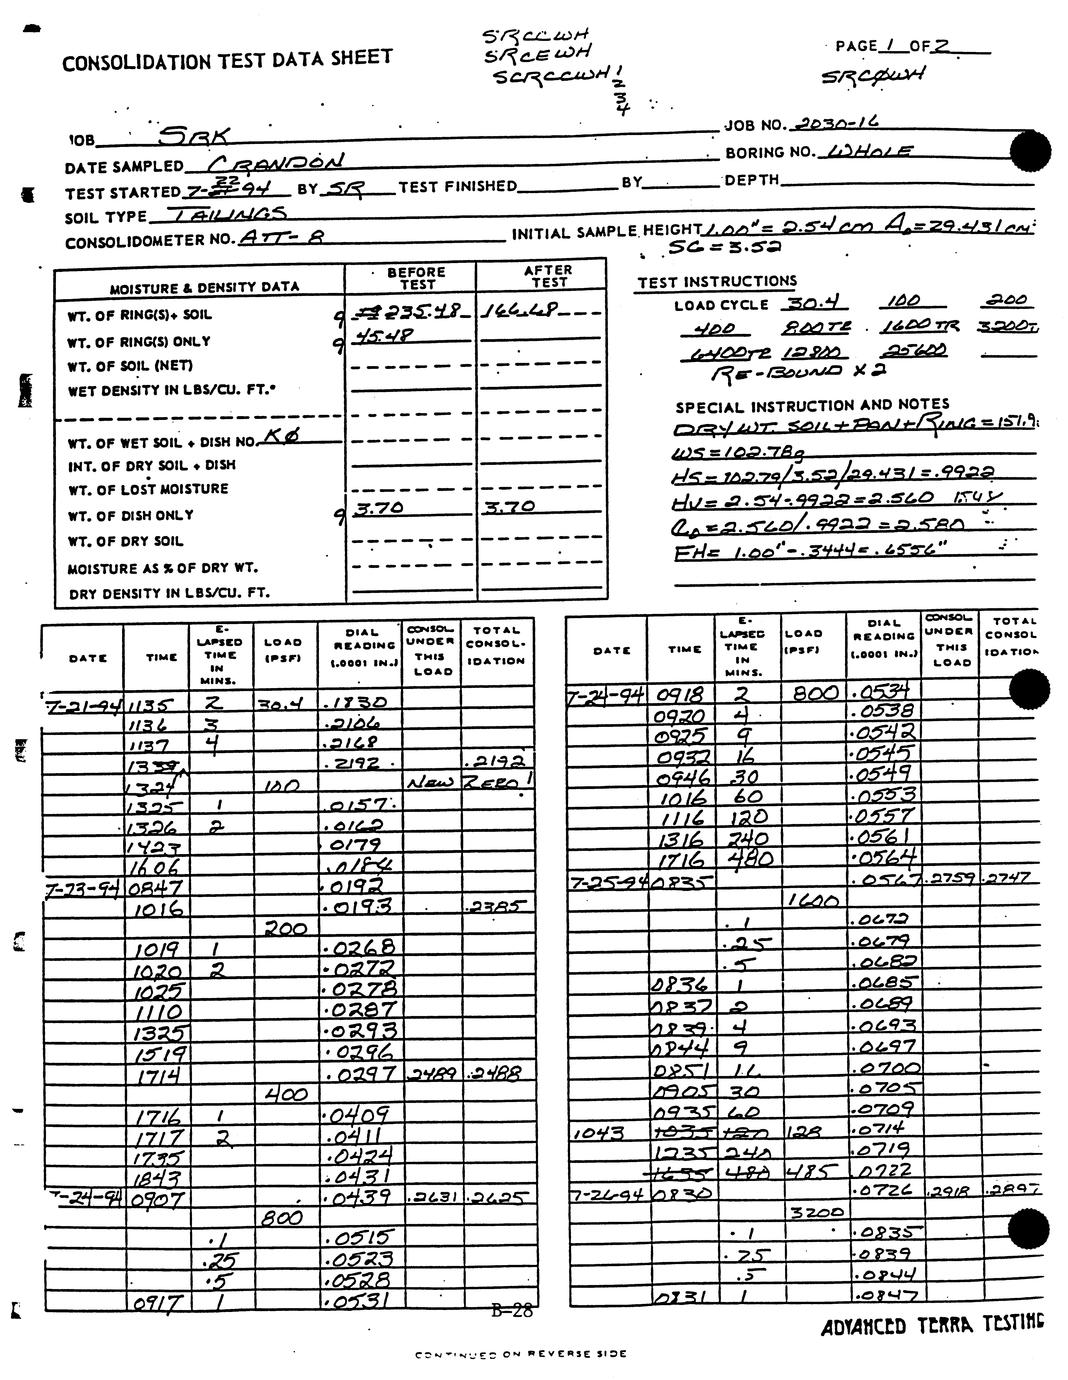 SRCCWH
SRCEWH
SCRCCWH 1
2
3
4
PAGE 1 OF 2
SRCØWH
CONSOLIDATION TEST DATA SHEET
JOB SRK
JOB NO. 2030-16
DATE SAMPLED CRANDON
BORING NO. WHOLE
TEST STARTED 7-22-94 BY SR TEST FINISHED BY DEPTH
SOIL TYPE TAILINGS
CONSOLIDOMETER NO. ATT-8 INITIAL SAMPLE HEIGHT 1.00" = 2.54 cm A₀=29.431 cm
SG = 3.52
MOISTURE & DENSITY DATA BEFORE TEST AFTER TEST
WT. OF RING(S)+ SOIL g 235.48 166.68
WT. OF RING(S) ONLY g 45.48
WT. OF SOIL (NET)
WET DENSITY IN LBS/CU. FT.*
WT. OF WET SOIL + DISH NO. KØ
INT. OF DRY SOIL + DISH
WT. OF LOST MOISTURE
WT. OF DISH ONLY g 3.70 3.70
WT. OF DRY SOIL
MOISTURE AS % OF DRY WT.
DRY DENSITY IN LBS/CU. FT.
TEST INSTRUCTIONS
LOAD CYCLE 30.4 100 200
400 800TR 1600TR 3200T
6400TR 12800 25600
RE-BOUND X 2
SPECIAL INSTRUCTION AND NOTES
DRY WT. SOIL+PAN+RING=151.9
WS=102.78g
HS=102.79/3.52/29.431=.9922
HV=2.54-.9922=2.560
e₀=2.560/.9922=2.580
FH= 1.00"-.3444=.6556"
DATE TIME E-LAPSED TIME IN MINS. LOAD (PSF) DIAL READING (.0001 IN.) CONSOL. UNDER THIS LOAD TOTAL CONSOL-IDATION
7-21-94 1135 2 30.4 .1830
1136 3 .2106
1137 4 .2168
1339 .2192 .2192
1324 100 NEW ZERO!
1325 1 .0157
1326 2 .0162
1423 .0179
1606 .0184
7-23-94 0847 .0192
1016 .0193 .2385
200
1019 1 .0268
1020 2 .0272
1025 .0278
1110 .0287
1325 .0293
1519 .0296
1714 .0297 .2489 .2488
400
1716 1 .0409
1717 2 .0411
1735 .0424
1843 .0431
7-24-94 0907 .0439 .2631 .2625
800
.1 .0515
.25 .0523
.5 .0528
0917 1 .0531
DATE TIME E-LAPSED TIME IN MINS. LOAD (PSF) DIAL READING (.0001 IN.) CONSOL UNDER THIS LOAD TOTAL CONSOL IDATION
7-24-94 0918 2 800 .0534
0920 4 .0538
0925 9 .0542
0932 16 .0545
0946 30 .0549
1016 60 .0553
1116 120 .0557
1316 240 .0561
1716 480 .0564
7-25-94 0835 .0567 .2759 .2747
1600
.1 .0672
.25 .0679
.5 .0682
0836 1 .0685
0837 2 .0689
0839 4 .0693
0844 9 .0697
0851 16 .0700
0905 30 .0705
0935 60 .0709
1043 1035 120 128 .0714
1235 240 .0719
1635 480 485 .0722
7-26-94 0830 .0726 .2918 .2897
3200
.1 .0835
.25 .0839
.5 .0844
0831 1 .0847
B-28
ADVANCED TERRA TESTING
CONTINUED ON REVERSE SIDE